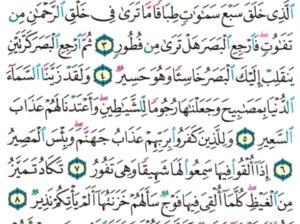 الَّذِي خَلَقَ سَبْعَ سَمَاوَاتٍ طِبَاقًا مَّا تَرَىٰ فِي خَلْقِ الرَّحْمَٰنِ مِن
تَفَاوُتٍ فَارْجِعِ الْبَصَرَ هَلْ تَرَىٰ مِن فُطُورٍ ٣ ثُمَّ ارْجِعِ الْبَصَرَ كَرَّتَيْنِ
يَنقَلِبْ إِلَيْكَ الْبَصَرُ خَاسِئًا وَهُوَ حَسِيرٌ ٤ وَلَقَدْ زَيَّنَّا السَّمَاءَ
الدُّنْيَا بِمَصَابِيحَ وَجَعَلْنَاهَا رُجُومًا لِّلشَّيَاطِينِ وَأَعْتَدْنَا لَهُمْ عَذَابَ
السَّعِيرِ ٥ وَلِلَّذِينَ كَفَرُوا بِرَبِّهِمْ عَذَابُ جَهَنَّمَ وَبِئْسَ الْمَصِيرُ
٦ إِذَا أُلْقُوا فِيهَا سَمِعُوا لَهَا شَهِيقًا وَهِيَ تَفُورُ ٧ تَكَادُ تَمَيَّزُ
مِنَ الْغَيْظِ كُلَّمَا أُلْقِيَ فِيهَا فَوْجٌ سَأَلَهُمْ خَزَنَتُهَا أَلَمْ يَأْتِكُمْ نَذِيرٌ ٨